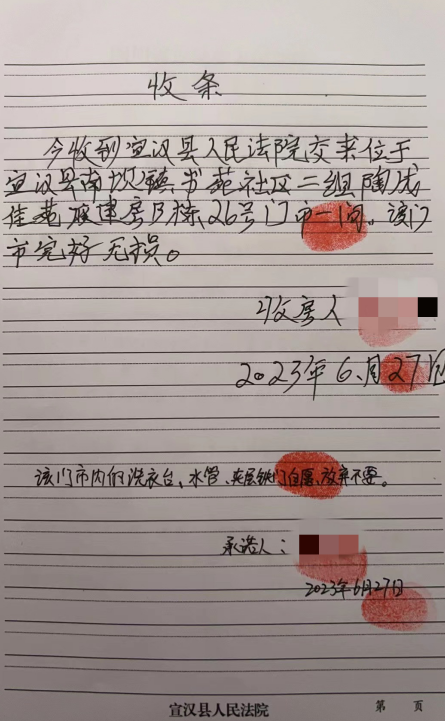 收条
今收到宣汉县人民法院交来位于
宣汉县南坝镇书苑社区二组陶成
佳苑 建房B栋26号门市一间。该门
市完好无损。
收房人
2023年6月27日
该门市内的洗衣台、水管、夹层铁门自愿放弃不要。
承诺人:
2023年6月27日
宣汉县人民法院
第 页